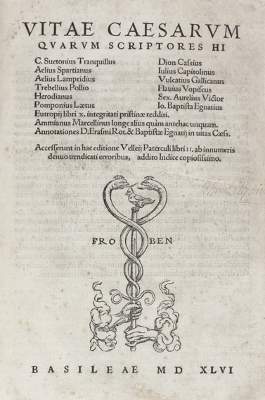 VITAE CAESARVM
QVARVM SCRIPTORES HI
C. Suetonius Tranquillus
Dion Cassius
Aelius Spartianus
Iulius Capitolinus
Aelius Lampridius
Vulcatius Gallicanus
Trebellius Pollio
Flauius Vopiscus
Herodianus
Sex. Aurelius Victor
Pomponius Lætus
Io. Baptista Egnatius
Eutropij libri x. integritati pristinæ redditi.
Ammianus Marcellinus longe alius quàm antehac unquam.
Annotationes D. Erasmi Rot. & Baptistæ Egnatij in uitas Cæss.
Accesserunt in hac editione Velleij Paterculi libri II. ab innumeris
denuo uendicati erroribus, addito Indice copiosissimo.
FRO BEN
BASILEAE MD XLVI